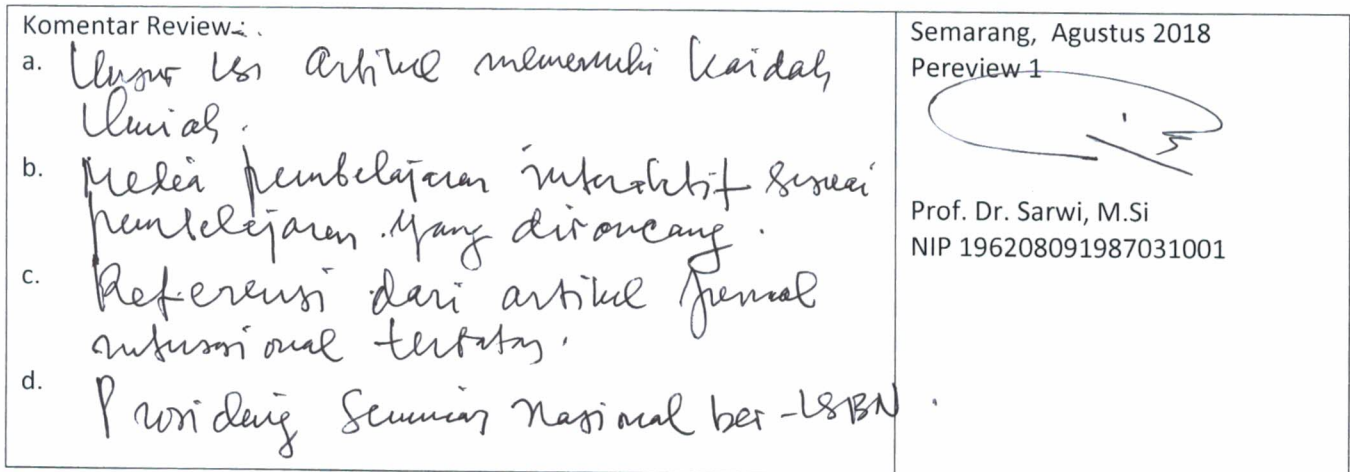 Komentar Review :
a. Unsur isi artikel memenuhi kaidah
ilmiah.
b. Media pembelajaran interaktif sesuai
pembelajaran yang dirancang.
c. Referensi dari artikel jurnal
internasional terbatas.
d. Prosiding Seminar Nasional ber-ISBN.
Semarang, Agustus 2018
Pereview 1
Prof. Dr. Sarwi, M.Si
NIP 196208091987031001